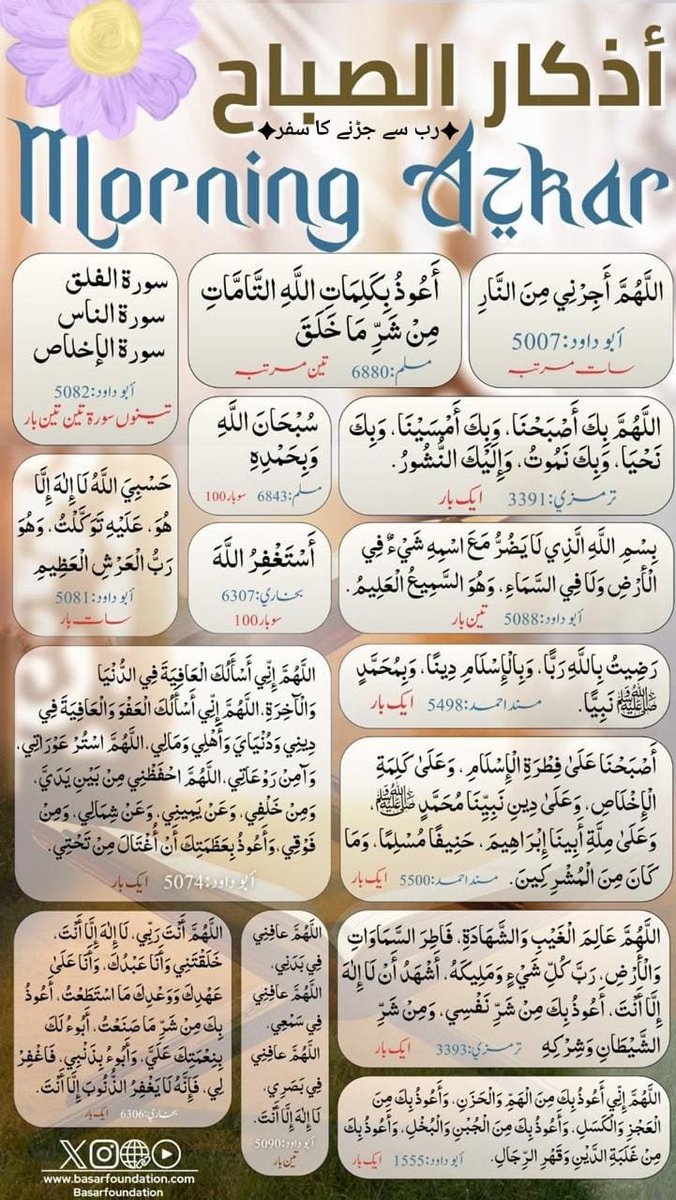 أذكار الصباح
✦رب سے جڑنے کا سفر✦
Morning Azkar
اللَّهُمَّ أَجِرْنِي مِنَ النَّارِ
أبو داود:5007
سات مرتبہ
أَعُوذُ بِكَلِمَاتِ اللَّهِ التَّامَّاتِ
مِنْ شَرِّ مَا خَلَقَ
مسلم:6880 تین مرتبہ
سورة الفلق
سورة الناس
سورة الإخلاص
أبو داود:5082
تینوں سورة تین تین بار
اللَّهُمَّ بِكَ أَصْبَحْنَا، وَبِكَ أَمْسَيْنَا، وَبِكَ
نَحْيَا، وَبِكَ نَمُوتُ، وَإِلَيْكَ النُّشُورُ.
ترمزي:3391 ایک بار
سُبْحَانَ اللَّهِ
وَبِحَمْدِهِ
مسلم:6843 سو بار100
حَسْبِيَ اللَّهُ لَا إِلٰهَ إِلَّا
هُوَ، عَلَيْهِ تَوَكَّلْتُ، وَهُوَ
رَبُّ الْعَرْشِ الْعَظِيمِ
أبو داود:5081
سات بار
بِسْمِ اللَّهِ الَّذِي لَا يَضُرُّ مَعَ اسْمِهِ شَيْءٌ فِي
الْأَرْضِ وَلَا فِي السَّمَاءِ، وَهُوَ السَّمِيعُ الْعَلِيمُ.
أبو داود:5088 تین بار
أَسْتَغْفِرُ اللَّهَ
بخاري:6307
سو بار100
رَضِيتُ بِاللَّهِ رَبًّا، وَبِالْإِسْلَامِ دِينًا، وَبِمُحَمَّدٍ
ﷺ نَبِيًّا. مسند احمد:5498 ایک بار
اللَّهُمَّ إِنِّي أَسْأَلُكَ الْعَافِيَةَ فِي الدُّنْيَا
وَالْآخِرَةِ، اللَّهُمَّ إِنِّي أَسْأَلُكَ الْعَفْوَ وَالْعَافِيَةَ فِي
دِينِي وَدُنْيَايَ وَأَهْلِي وَمَالِي، اللَّهُمَّ اسْتُرْ عَوْرَاتِي،
وَآمِنْ رَوْعَاتِي، اللَّهُمَّ احْفَظْنِي مِنْ بَيْنِ يَدَيَّ،
وَمِنْ خَلْفِي، وَعَنْ يَمِينِي، وَعَنْ شِمَالِي، وَمِنْ
فَوْقِي، وَأَعُوذُ بِعَظَمَتِكَ أَنْ أُغْتَالَ مِنْ تَحْتِي.
أبو داود:5074 ایک بار
أَصْبَحْنَا عَلَىٰ فِطْرَةِ الْإِسْلَامِ، وَعَلَىٰ كَلِمَةِ
الْإِخْلَاصِ، وَعَلَىٰ دِينِ نَبِيِّنَا مُحَمَّدٍ ﷺ،
وَعَلَىٰ مِلَّةِ أَبِينَا إِبْرَاهِيمَ، حَنِيفًا مُسْلِمًا، وَمَا
كَانَ مِنَ الْمُشْرِكِينَ. مسند احمد:5500 ایک بار
اللَّهُمَّ عَالِمَ الْغَيْبِ وَالشَّهَادَةِ، فَاطِرَ السَّمَاوَاتِ
وَالْأَرْضِ، رَبَّ كُلِّ شَيْءٍ وَمَلِيكَهُ، أَشْهَدُ أَنْ لَا إِلٰهَ
إِلَّا أَنْتَ، أَعُوذُ بِكَ مِنْ شَرِّ نَفْسِي، وَمِنْ شَرِّ
الشَّيْطَانِ وَشِرْكِهِ ترمزي:3393 ایک بار
اللَّهُمَّ عَافِنِي
فِي بَدَنِي،
اللَّهُمَّ عَافِنِي
فِي سَمْعِي،
اللَّهُمَّ عَافِنِي
فِي بَصَرِي،
لَا إِلٰهَ إِلَّا أَنْتَ.
أبو داود:5090
تین بار
اللَّهُمَّ أَنْتَ رَبِّي، لَا إِلٰهَ إِلَّا أَنْتَ،
خَلَقْتَنِي وَأَنَا عَبْدُكَ، وَأَنَا عَلَىٰ
عَهْدِكَ وَوَعْدِكَ مَا اسْتَطَعْتُ، أَعُوذُ
بِكَ مِنْ شَرِّ مَا صَنَعْتُ، أَبُوءُ لَكَ
بِنِعْمَتِكَ عَلَيَّ، وَأَبُوءُ بِذَنْبِي، فَاغْفِرْ
لِي، فَإِنَّهُ لَا يَغْفِرُ الذُّنُوبَ إِلَّا أَنْتَ.
بخاري:6306 ایک بار
اللَّهُمَّ إِنِّي أَعُوذُ بِكَ مِنَ الْهَمِّ وَالْحَزَنِ، وَأَعُوذُ بِكَ مِنَ
الْعَجْزِ وَالْكَسَلِ، وَأَعُوذُ بِكَ مِنَ الْجُبْنِ وَالْبُخْلِ، وَأَعُوذُ بِكَ
مِنْ غَلَبَةِ الدَّيْنِ وَقَهْرِ الرِّجَالِ. أبو داود:1555 ایک بار
www.basarfoundation.com
Basarfoundation